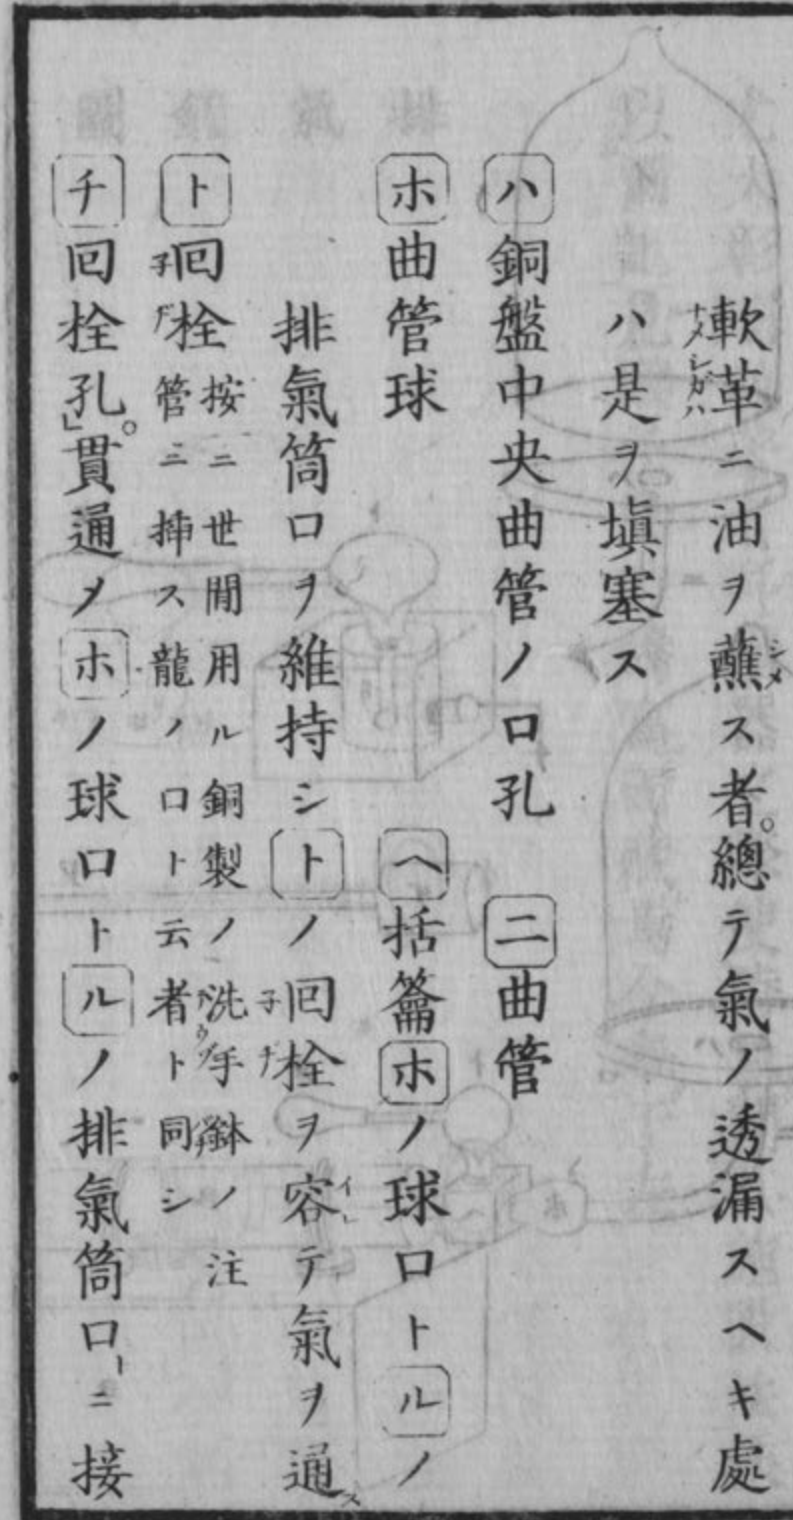 軟革ニ油ヲ蘸ス者。總テ氣ノ透漏スヘキ處
ハ是ヲ塡塞ス
ハ銅盤中央曲管ノ口孔　ニ曲管
ホ曲管球　ヘ括籥ホノ球口トルノ
排氣筒口ヲ維持シトノ回栓ヲ容テ氣ヲ通
ト回栓 按ニ世間用ル銅製ノ洗手鉢ノ注
管ニ揷ス龍ノ口ト云者ト同シ
チ回栓孔。貫通メホノ球口トルノ排氣筒口ニ接